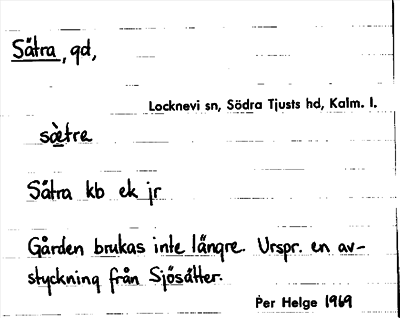 Sätra, gd,
Locknevi sn, Södra Tjusts hd, Kalm. l.
sä̀tre
Sätra kb ek jr
Gården brukas inte längre. Urspr. en av-
styckning från Sjösätter.
Per Helge 1969